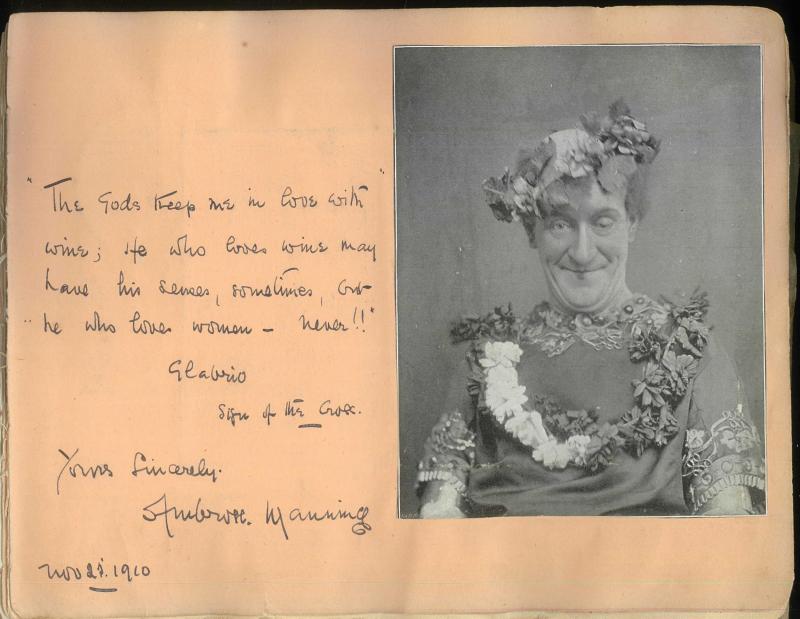 "The Gods keep me in love with
wine; He who loves wine may
have his senses, sometimes, but
"he who loves women – never!!"
Glabrio
Sign of the Cross.
Yours Sincerely.
Ambrose. Manning
Nov 21. 1910